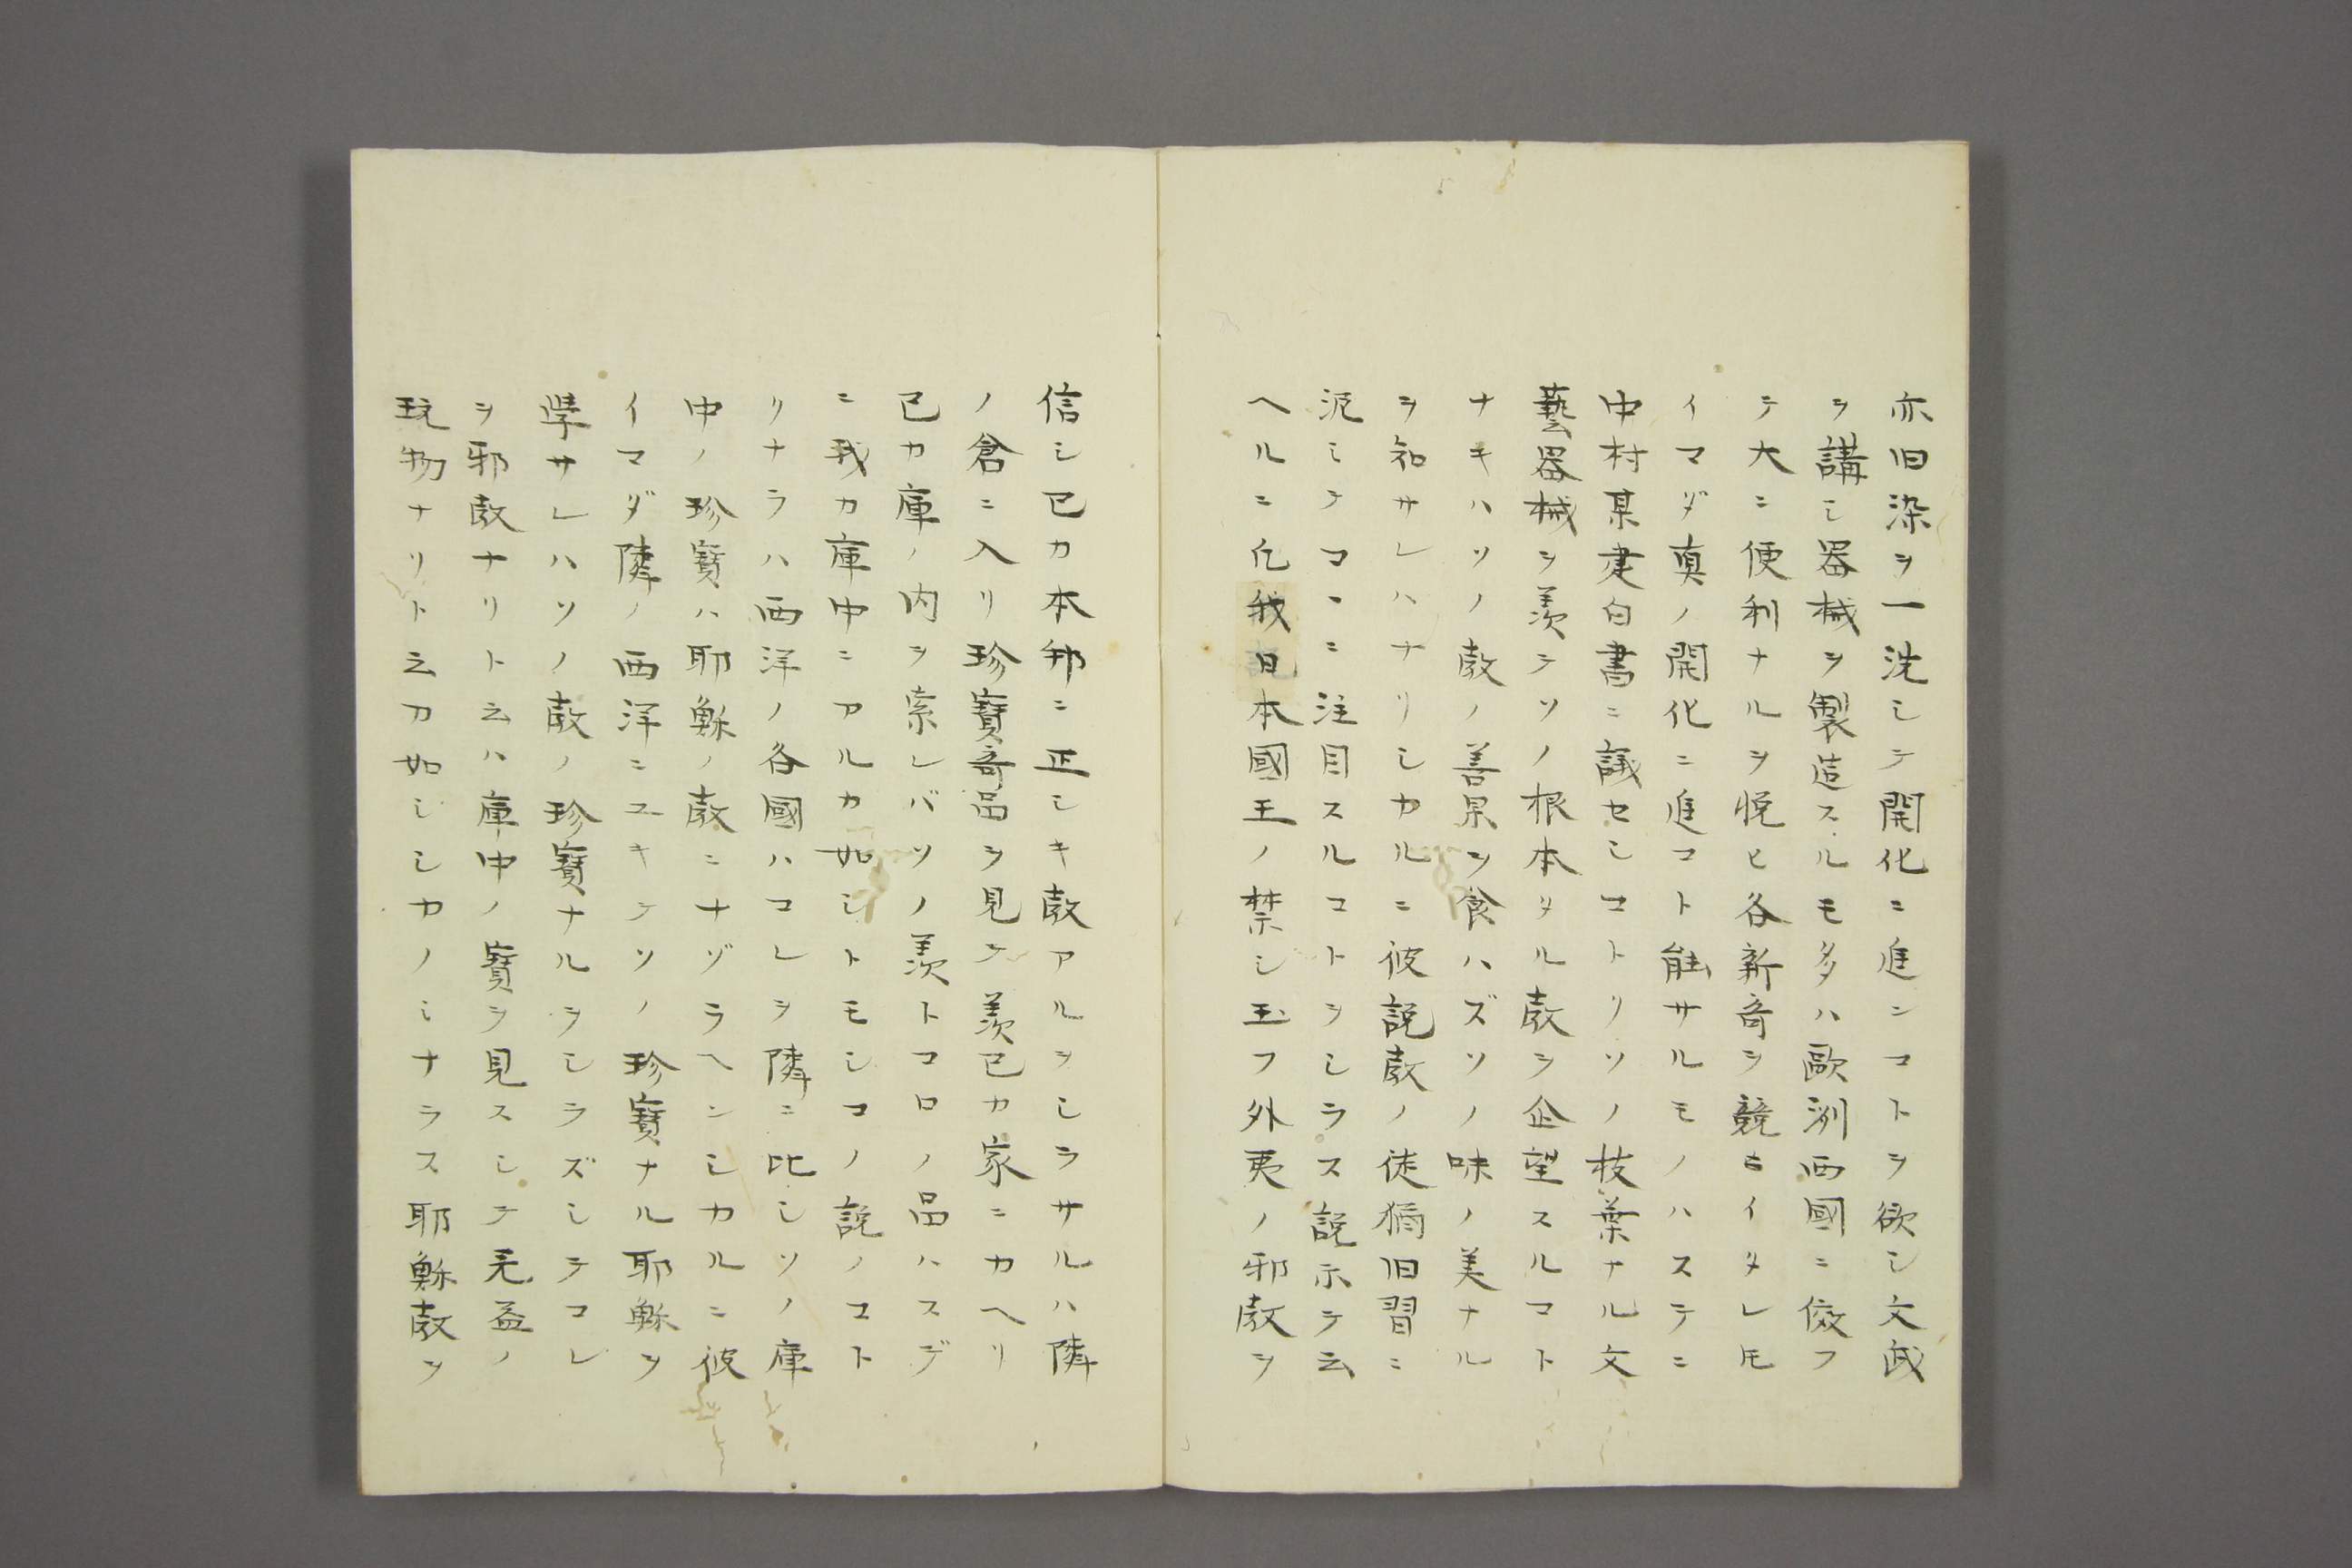 亦旧染ヲ一洗シテ開化ニ進ンコトヲ欲シ文武
ヲ講シ器械ヲ製造スルモ多ハ歐洲西國ニ倣フ
テ大ニ便利ナルヲ悦ヒ各新奇ヲ競ヒイタレ𪜈
イマダ真ノ開化ニ進コト能サルモノハステニ
中村某建白書ニ議セシコトリソノ枝葉ナル文
藝器械ヲ羨テソノ根本タル教ヲ企望スルコト
ナキハソノ教ノ善果ヲ食ハズソノ味ノ美ナル
ヲ知サレハナリシカルニ彼説教ノ徒猶旧習ニ
泥ミテコヽニ注目スルコトヲシラス説示テ云
ヘルニ凡我日本國王ノ禁シ玉フ外夷ノ邪教ヲ
信シ已カ本邦ニ正シキ教アルヲシラサルハ隣
ノ倉ニ入リ珍寶奇品ヲ見テ羨已カ家ニカヘリ
已カ庫ノ内ヲ索レバソノ羨トコロノ品ハスデ
ニ我カ庫中ニアルカ如シトモシコノ説ノコト
リナラハ西洋ノ各國ハコレヲ隣ニ比シソノ庫
中ノ珍寶ハ耶穌ノ教ニナゾラヘンシカルニ彼
イマダ隣ノ西洋ニユキテソノ珍寶ナル耶穌ヲ
学サレハソノ教ノ珍寶ナルヲシラズシテコレ
ヲ邪教ナリト云ハ庫中ノ寶ヲ見スシテ无益ノ
玩物ナリト云カ如シシカノミナラス耶穌教ヲ